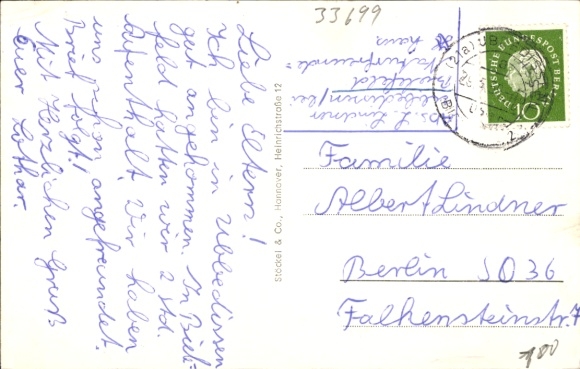 33699
Liebe Eltern!
Ich bin in Ubbedissen
gut angekommen. In Biele-
feld hatten wir 2 Std.
Aufenthalt. Wir haben
uns schon angefreundet.
Brief folgt!
Mit Herzlichen Gruß
Euer Lothar.
Stöckel & Co., Hannover, Heinrichstraße 12
L. Lindner
Ubbedissen/bei
Bielefeld
Naturfreunde-
haus
DEUTSCHE BUNDESPOST BERLIN
10
Familie
Albert Lindner
Berlin SO 36
Falkensteinstr. 7
100